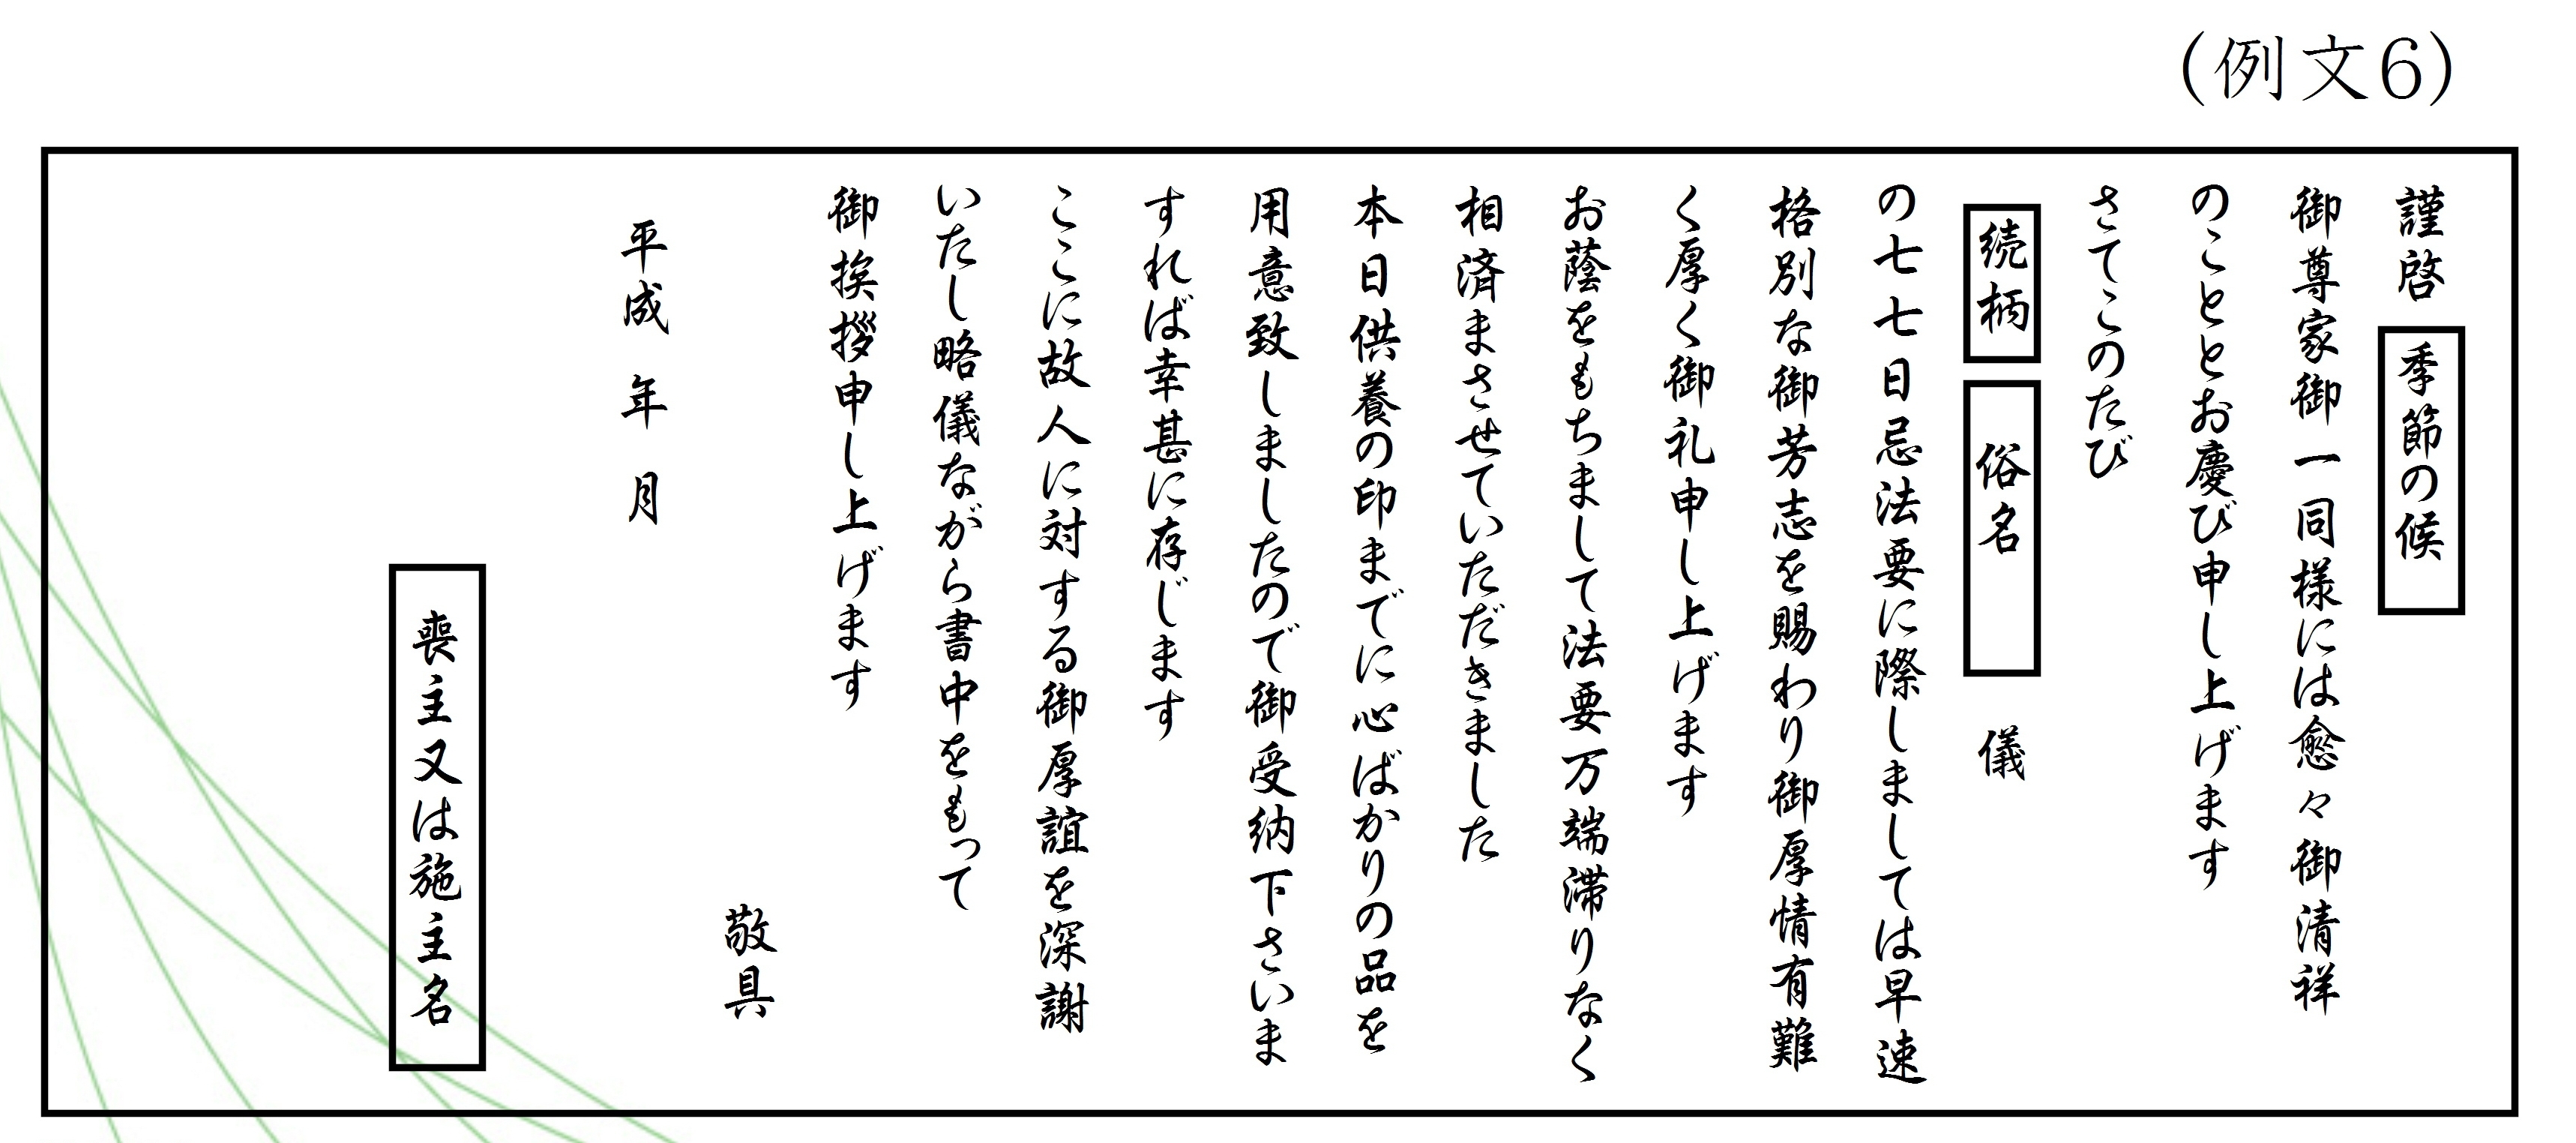 (例文6)
謹啓 季節の候
御尊家御一同様には愈々御清祥
のこととお慶び申し上げます
さてこのたび
続柄 俗名 儀
の七七日忌法要に際しましては早速
格別な御芳志を賜わり御厚情有難
く厚く御礼申し上げます
お蔭をもちまして法要万端滞りなく
相済まさせていただきました
本日供養の印までに心ばかりの品を
用意致しましたので御受納下さいま
すれば幸甚に存じます
ここに故人に対する御厚誼を深謝
いたし略儀ながら書中をもって
御挨拶申し上げます
敬具
平成 年 月
喪主又は施主名